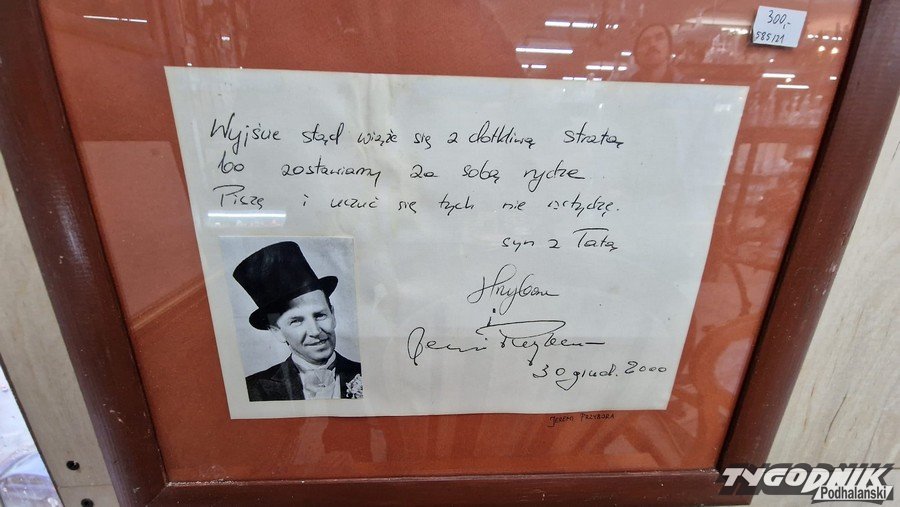 300,-
585/21
Wyjście stąd wiąże się z dotkliwą stratą
bo zostawiamy za sobą rydze
Piszę i uczuć się tych nie wstydzę.
syn z Tatą
i
30 grud. 2000
JEREMI PRZYBORA
TYGODNIK
Podhalański